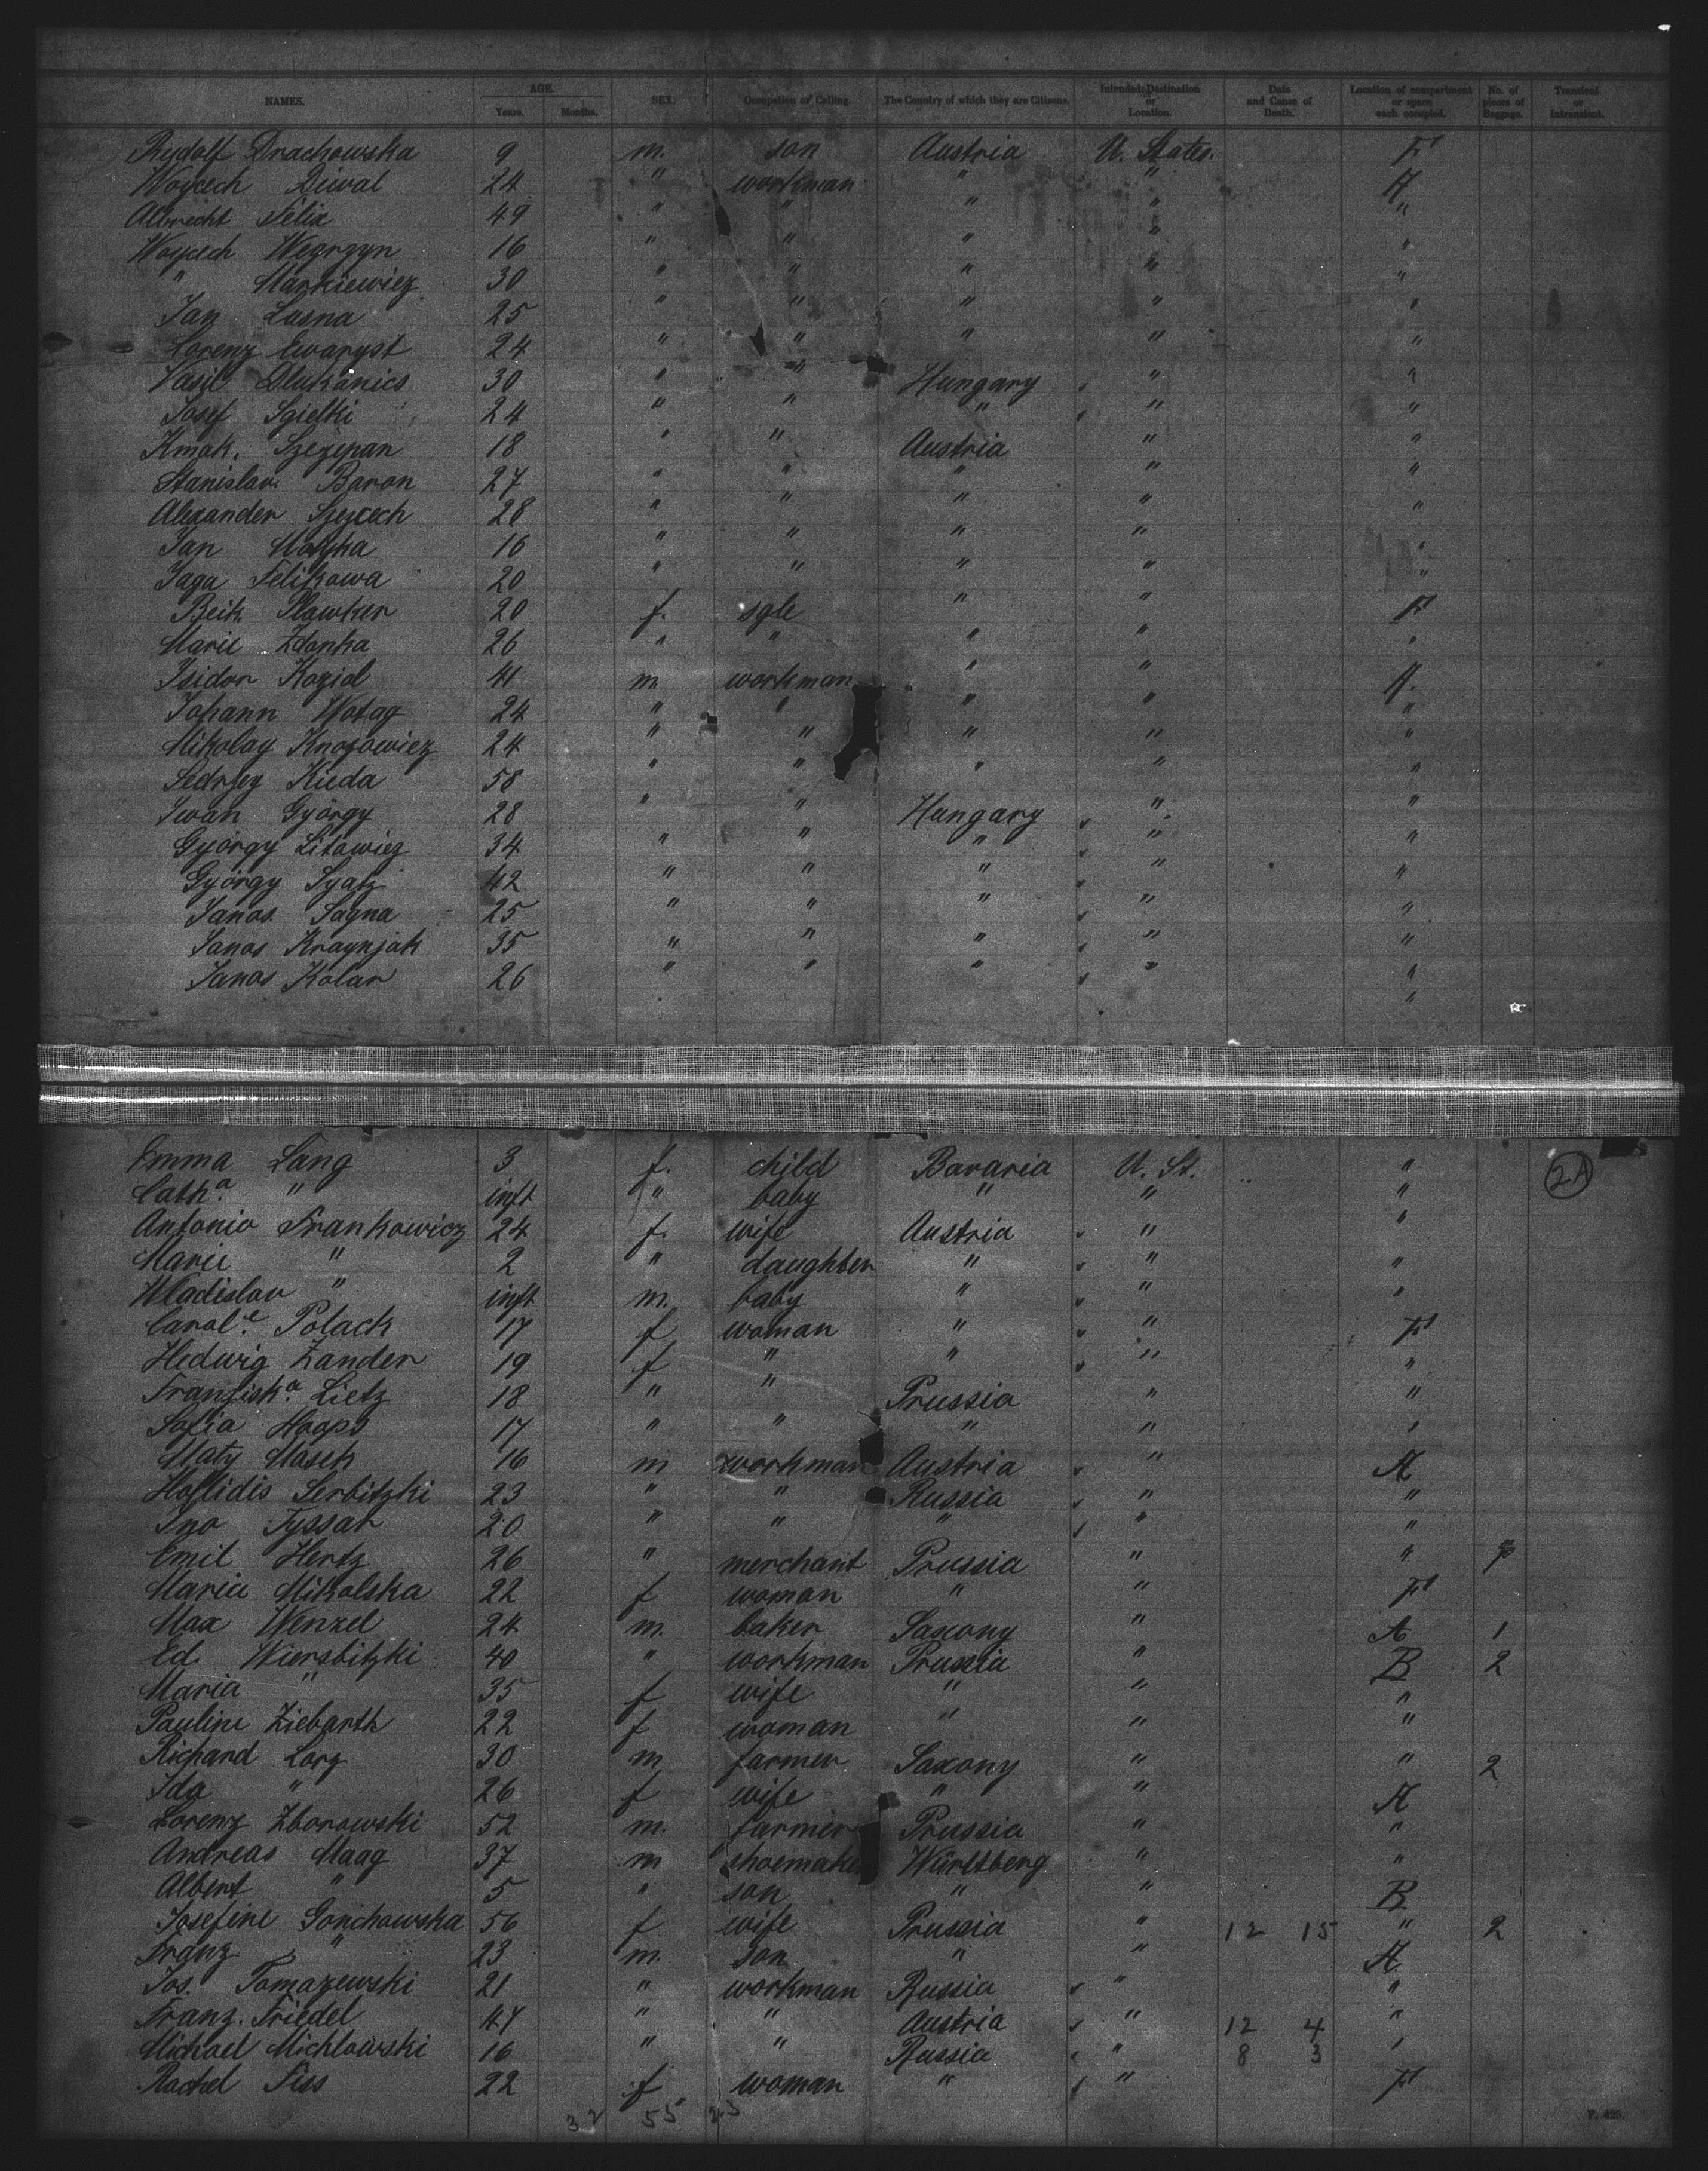 NAMES. AGE. Years. Months. SEX. Occupation or Calling. The Country of which they are Citizens. Intended Destination or Location. Date and Cause of Death. Location of compartment or space each occupied. No. of pieces of Baggage. Transient or Intransient.
Rudolf Drachowska 9 m. son Austria U. States. F
Woycech Diwal 24 " workman " " A
Albrecht Felix 49 " " " " "
Woycech Wegrzyn 16 " " " " "
" Markiewicz 30 " " " " "
Jan Lasna 25 " " " " "
Lorenz Ewaryst 24 " " " " "
Vasil Dlukanics 30 " " Hungary " "
Josef Sgielki 24 " " " " "
Kmak. Szczepan 18 " " Austria " "
Stanislav Baron 27 " " " " "
Alexander Szezcech 28 " " " " "
Jan Motyka 16 " " " " "
Jaga Felikowa 20 " " " " "
Beik Slawker 20 f. sgle " " F
Marie Zdonka 26 " " " " "
Isidor Koziol 41 m. workman " " A.
Johann Wotag 24 " " " " "
Mikolay Knozowicz 24 " " " " "
Kieda 58 " " " " "
Iwan György 28 " " Hungary " "
György Litawicz 34 " " " " "
György Syatz 42 " " " " "
Janos Sagna 25 " " " " "
Janos Kraynjak 35 " " " " "
Janos Kolar 26 " " " " "
Emma Lang 3 f. child Bavaria U. St. " 2A
Cath.a " inft " baby " " "
Antonio Frankowicz 24 f. wife Austria " "
Marie " 2 " daughter " " "
Wladislav " inft m. baby " " "
Carol.e Polack 17 f woman " " F
Hedwig Zander 19 f " " " "
Franzisk.a Lietz 18 " " Prussia " "
Sofia Hoops 17 " " " " "
Maty Masek 16 m workman Austria " A
Hollidis Serbitzki 23 " " Russia " "
Ino Tyssar 20 " " " " "
Emil Hertz 26 " merchant Prussia " "
Maria Mikolska 22 f woman " " F
Max Wenzel 24 m. baker Saxony " A 1
Ed Wiersbitzki 40 " workman Prussia " B 2
Maria " 35 f wife " " "
Pauline Ziebarth 22 f woman " " "
Richard Lorz 30 m farmer Saxony " " 2
Ida " 26 f wife " " A
Lorenz Zborowski 52 m. farmer Prussia " "
Andreas Maag 37 m shoemaker Württberg " "
Albert " 5 " son " " B
Josefine Gonchowska 56 f wife Prussia " 12 15 " 2
Franz " 23 m. son " " A.
Jos. Tomazewski 21 " workman Russia " "
Franz. Friedel 47 " " Austria " 12 4 "
Michael Michlowski 16 " " Russia " 8 3 "
Rachel Fiss 22 f woman " " F
32 55 23
F. 425.